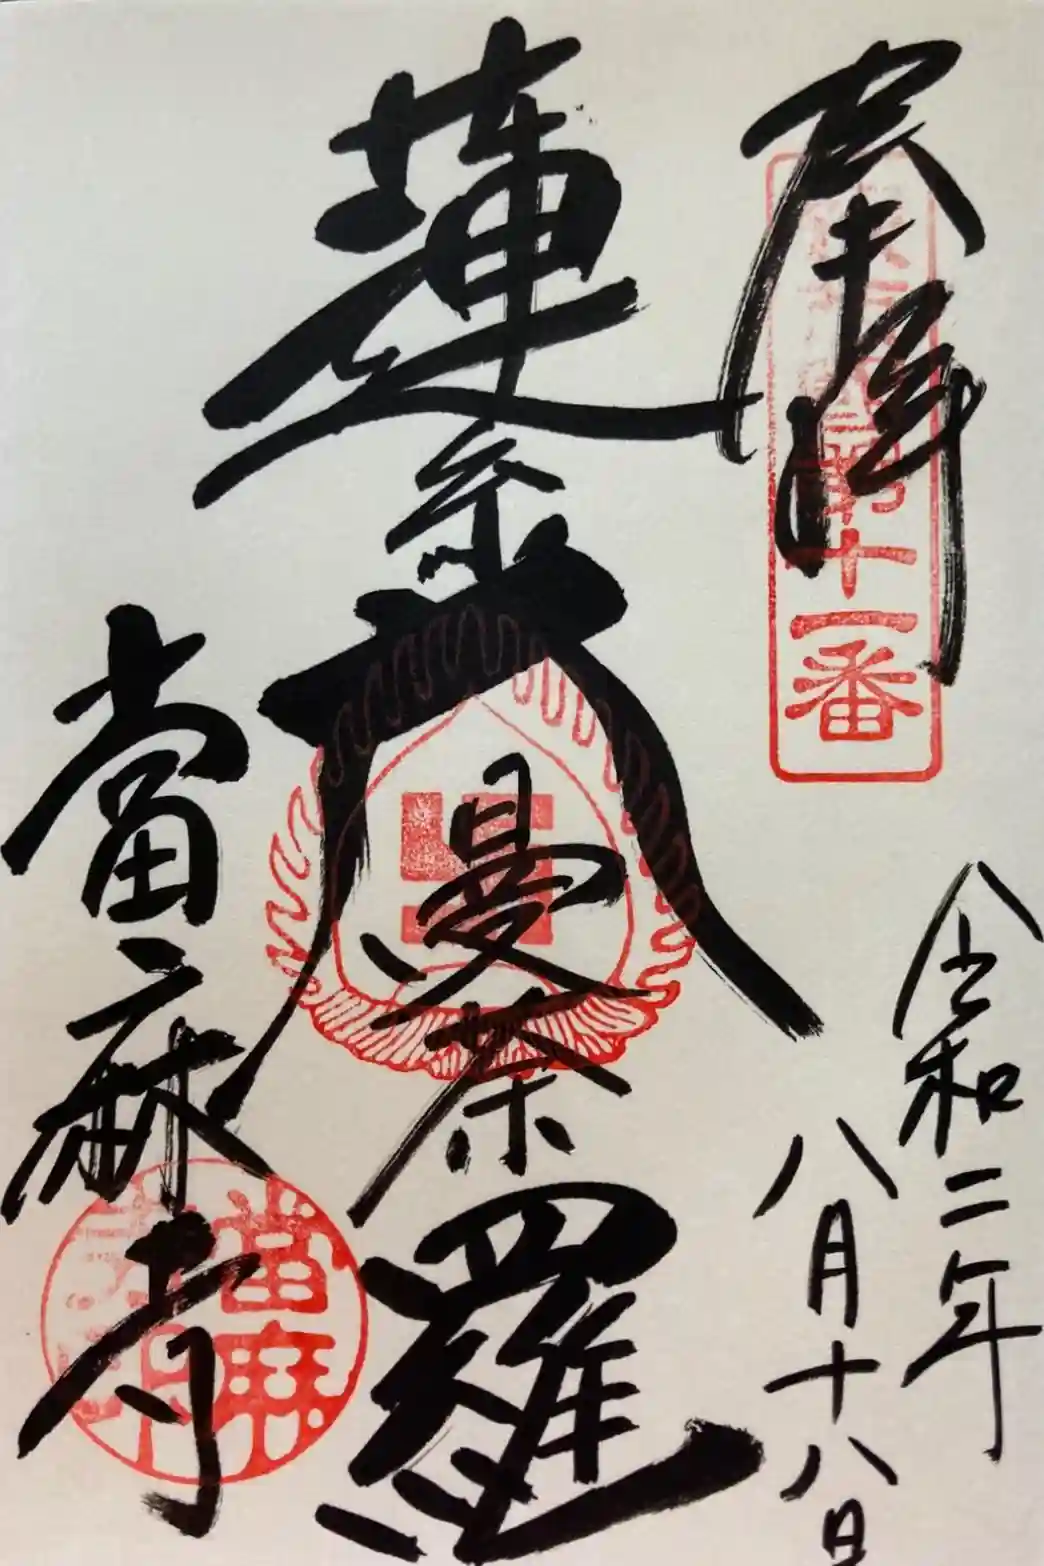 奉拝
第十一番
令和二年
八月十八日
蓮糸大曼荼羅
當麻寺
當麻